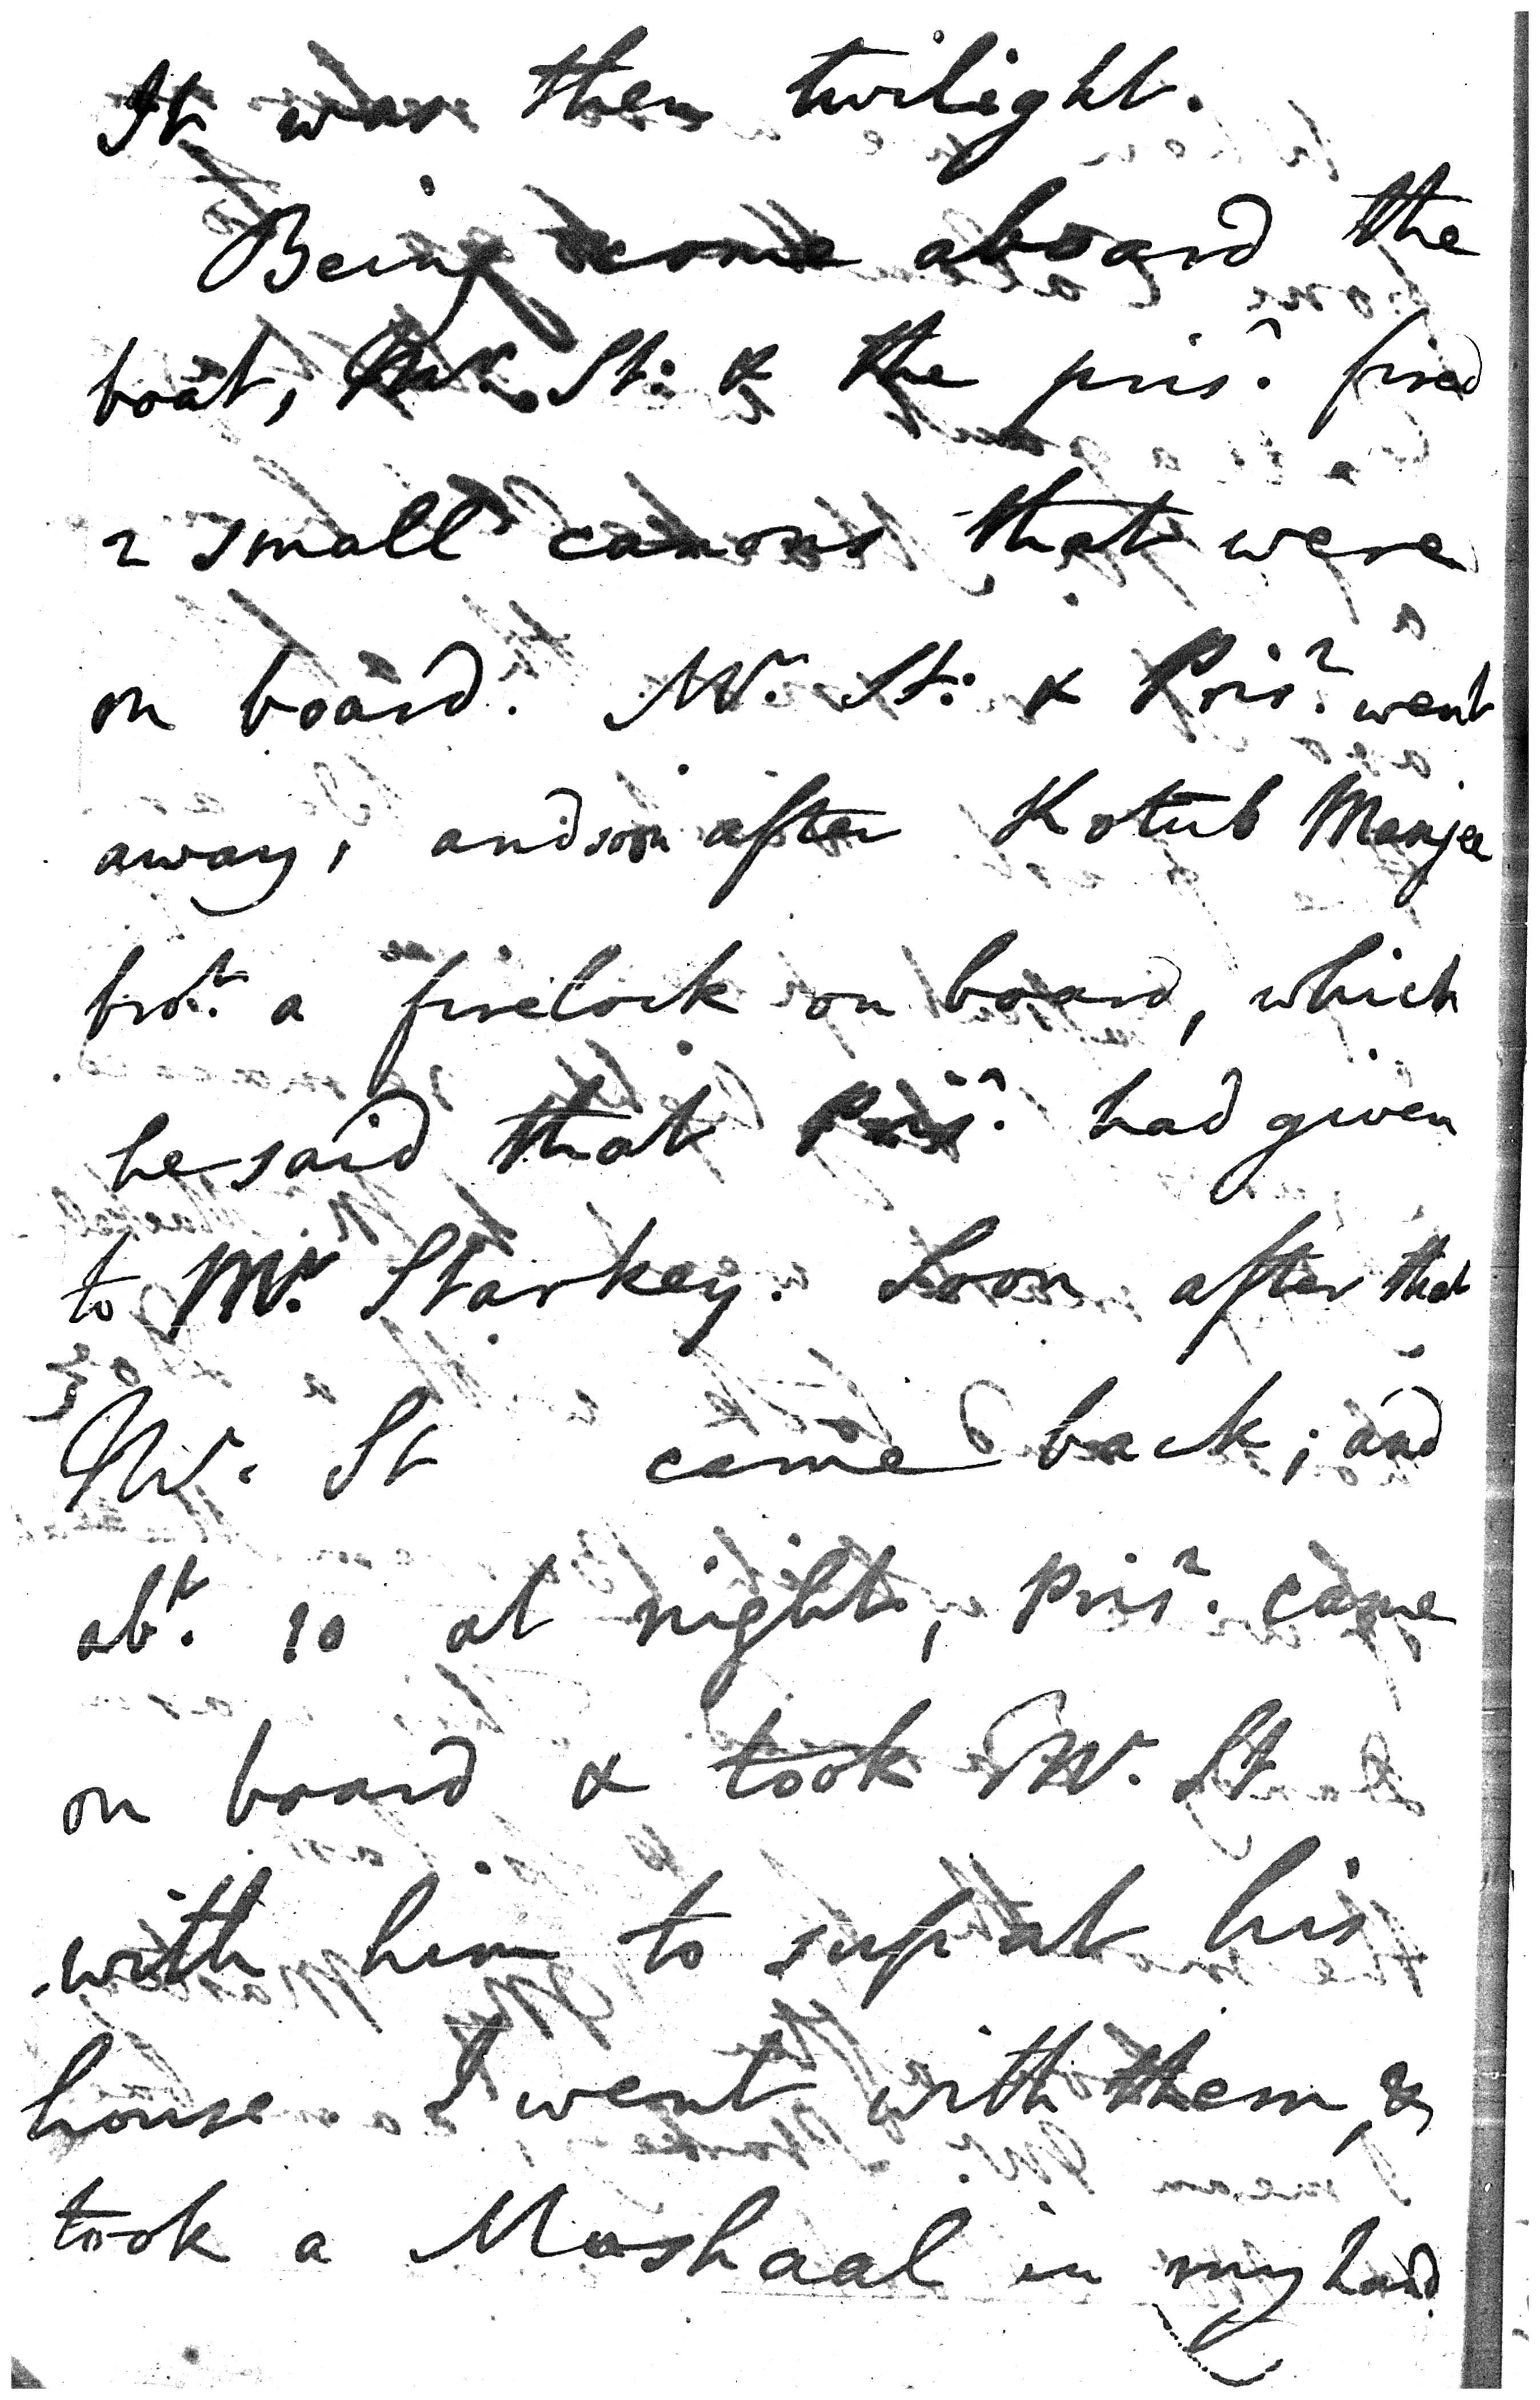 It was then twilight.
Being come aboard the
boat, Mr. St. & the prisr. fired
2 small canons that were
on board. Mr. St. & Prisr. went
away, and soon after Kotub Manjee
brot. a firelock on board, which
he said that Prisr. had given
to Mr. Starkey. Soon after that
Mr. St came back; and
abt. 10 at night, Prisr. came
on board & took Mr. St
with him to sup at his
house I went with them, &
took a Mashaal in my hand